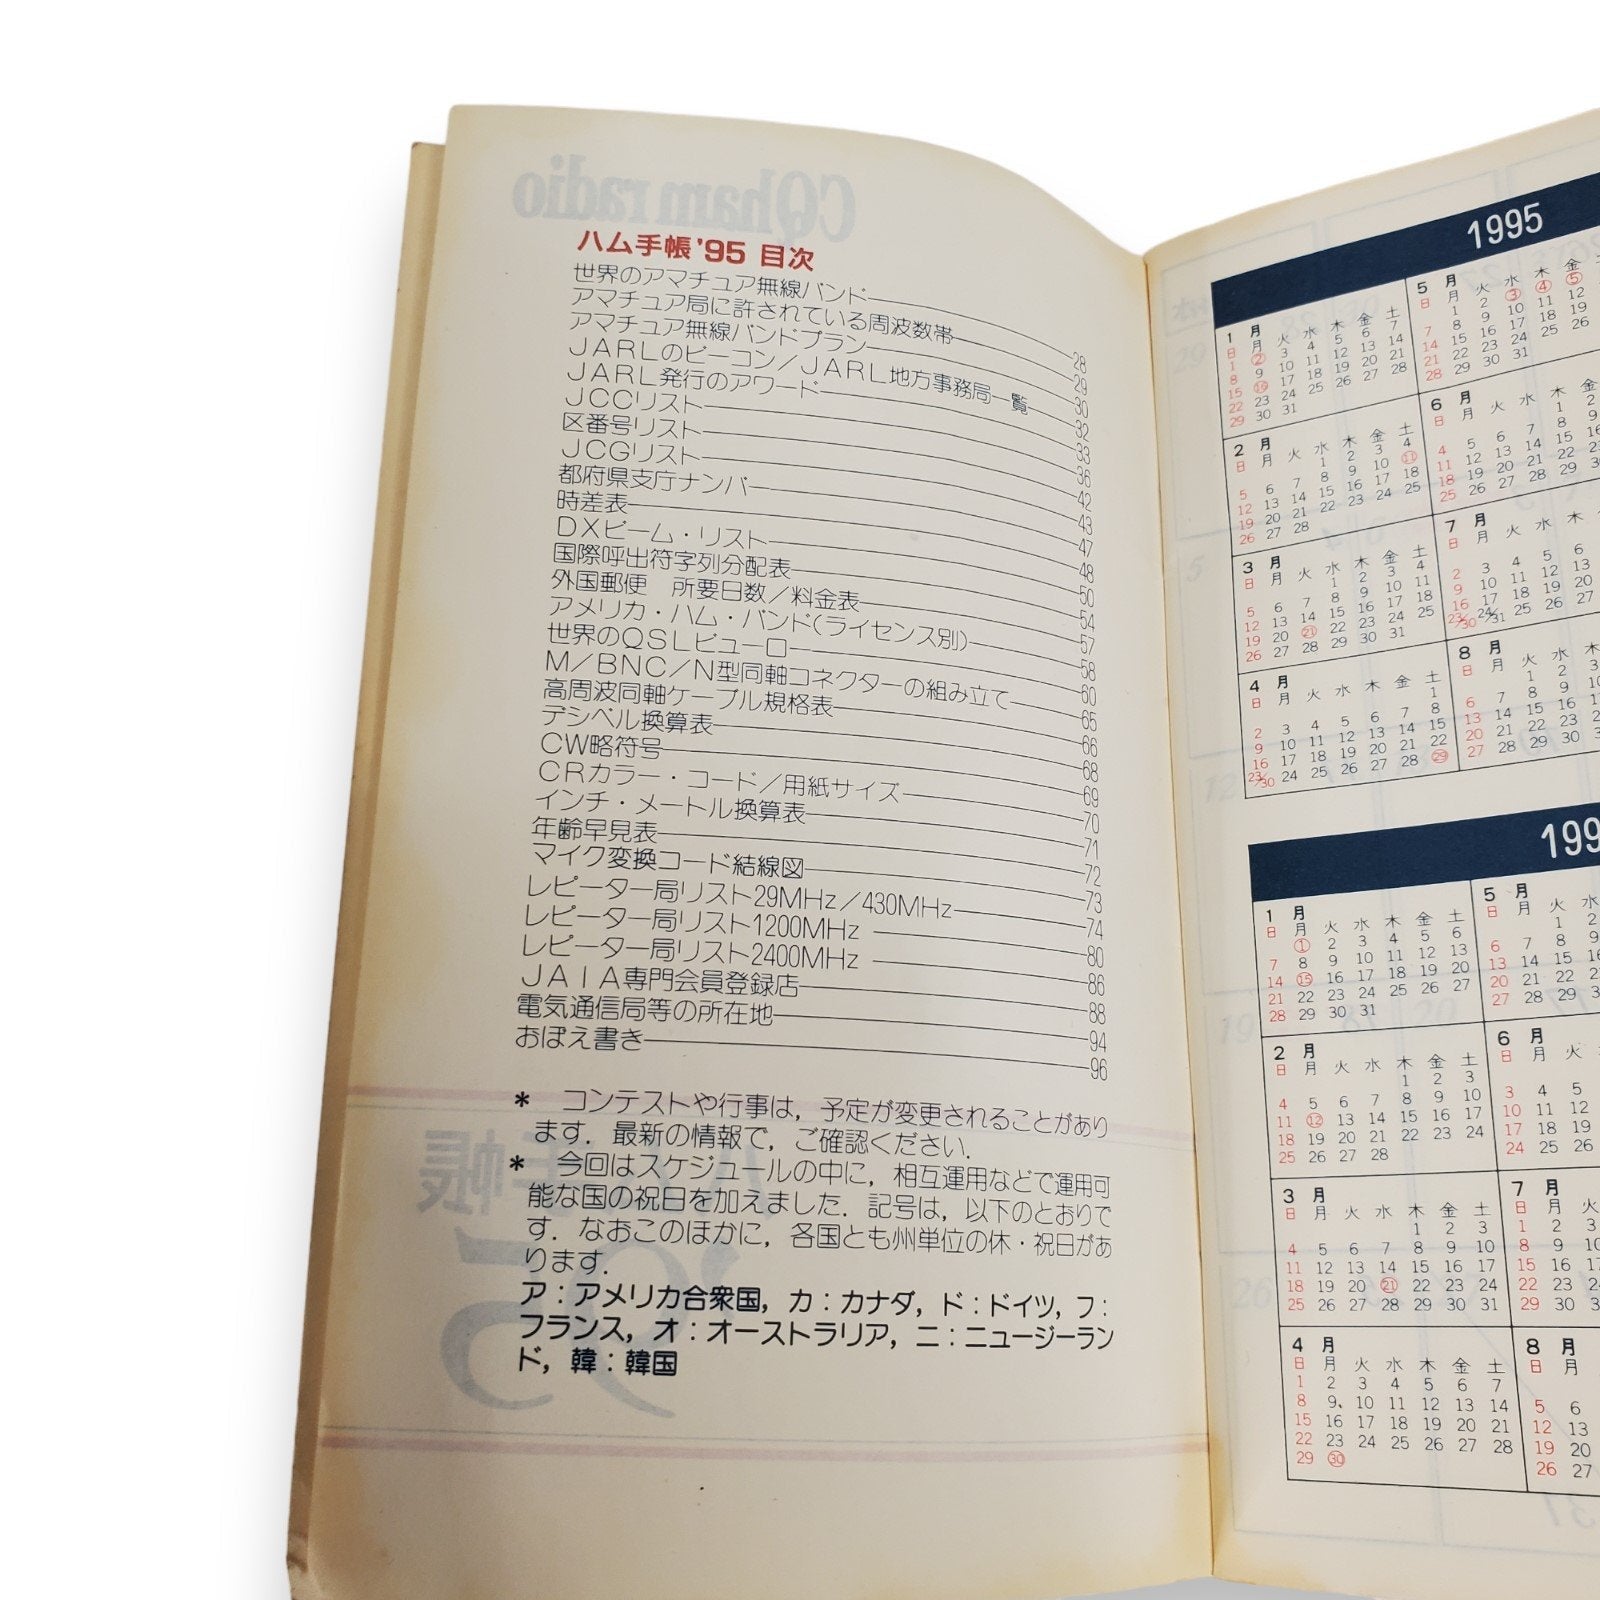 CQ ham radio
ハム手帳 '95 目次
世界のアマチュア無線バンド 28
アマチュア局に許されている周波数帯 29
アマチュア無線バンドプラン 30
JARLのビーコン/JARL地方事務局一覧 32
JARL発行のアワード 33
JCCリスト 36
区番号リスト 42
JCGリスト 43
都府県支庁ナンバ 47
時差表 48
DXビーム・リスト 50
国際呼出符字列分配表 54
外国郵便 所要日数/料金表 57
アメリカ・ハム・バンド(ライセンス別) 58
世界のQSLビューロ 60
M/BNC/N型同軸コネクターの組み立て 65
高周波同軸ケーブル規格表 66
デシベル換算表 68
CW略符号 69
CRカラー・コード/用紙サイズ 70
インチ・メートル換算表 71
年齢早見表 72
マイク変換コード結線図 73
レピーター局リスト29MHz/430MHz 74
レピーター局リスト1200MHz 80
レピーター局リスト2400MHz 86
JAIA専門会員登録店 88
電気通信局等の所在地 94
おぼえ書き 96
* コンテストや行事は, 予定が変更されることがあり
ます. 最新の情報で, ご確認ください.
* 今回はスケジュールの中に, 相互運用などで運用可
能な国の祝日を加えました. 記号は, 以下のとおりで
す. なおこのほかに, 各国とも州単位の休・祝日があ
ります.
ア:アメリカ合衆国, カ:カナダ, ド:ドイツ, フ:
フランス, オ:オーストラリア, ニ:ニュージーラン
ド, 韓:韓国
1995
1 月
日 月 火 水 木 金 土
1 ② 3 4 5 6 7
8 9 10 11 12 13 14
15 ⑯ 17 18 19 20 21
22 23 24 25 26 27 28
29 30 31
2 月
日 月 火 水 木 金 土
1 2 3 4
5 6 7 8 9 10 ⑪
12 13 14 15 16 17 18
19 20 21 22 23 24 25
26 27 28
3 月
日 月 火 水 木 金 土
1 2 3 4
5 6 7 8 9 10 11
12 13 14 15 16 17 18
19 20 ㉑ 22 23 24 25
26 27 28 29 30 31
4 月
日 月 火 水 木 金 土
1
2 3 4 5 6 7 8
9 10 11 12 13 14 15
16 17 18 19 20 21 22
23/30 24 25 26 27 28 ㉙
5 月
日 月 火 水 木 金
1 2 ③ ④ ⑤
7 8 9 10 11 12
14 15 16 17 18 19
21 22 23 24 25 26
28 29 30 31
6 月
日 月 火 水 木 金
1 2
4 5 6 7 8 9
11 12 13 14 15 16
18 19 20 21 22 23
25 26 27 28 29 30
7 月
日 月 火 水 木
2 3 4 5 6
9 10 11 12 13
16 17 18 19 20
23/30 24/31 25 26 27
8 月
日 月 火 水 木
1 2 3
6 7 8 9 10
13 14 15 16 17
20 21 22 23 24
27 28 29 30 31
199
1 月
日 月 火 水 木 金 土
① 2 3 4 5 6
7 8 9 10 11 12 13
14 ⑮ 16 17 18 19 20
21 22 23 24 25 26 27
28 29 30 31
2 月
日 月 火 水 木 金 土
1 2 3
4 5 6 7 8 9 10
11 ⑫ 13 14 15 16 17
18 19 20 21 22 23 24
25 26 27 28
3 月
日 月 火 水 木 金 土
1 2 3
4 5 6 7 8 9 10
11 12 13 14 15 16 17
18 19 20 ㉑ 22 23 24
25 26 27 28 29 30 31
4 月
日 月 火 水 木 金 土
1 2 3 4 5 6 7
8 9 10 11 12 13 14
15 16 17 18 19 20 21
22 23 24 25 26 27 28
29 ㉚
5 月
日 月 火 水
1 2
6 7 8 9
13 14 15 16
20 21 22 23
27 28 29 30
6 月
日 月 火
3 4 5
10 11 12
17 18 19
24 25 26
7 月
日 月 火
1 2 3
8 9 10
15 16 17
22 23 24
29 30 31
8 月
日 月
5 6
12 13
19 20
26 27